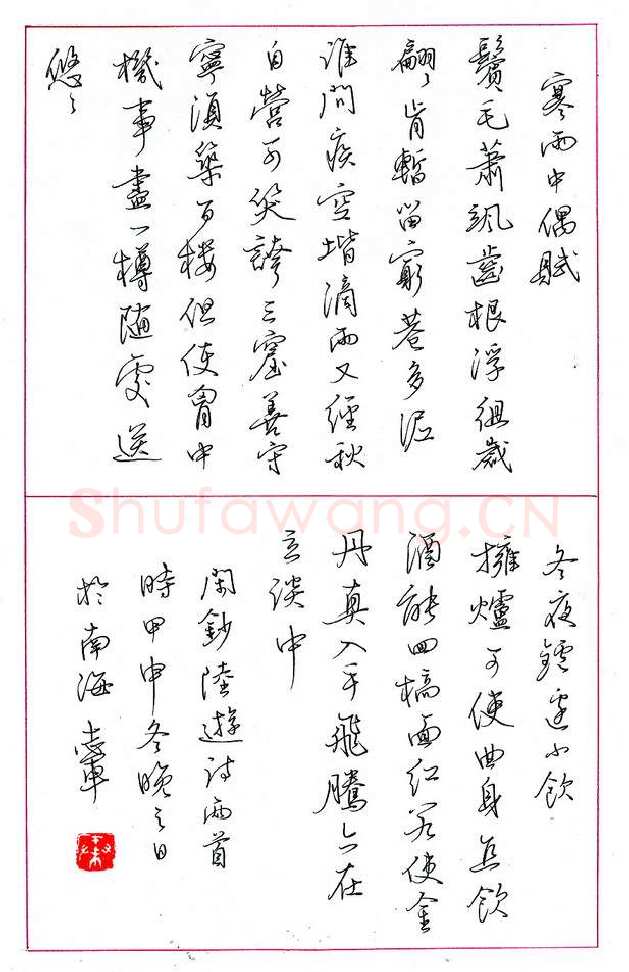 寒雨中偶賦
鬢毛蕭颯齒根浮徂歲
翩〻肯暫留窮巷多泥
誰問疾空堦滴雨又經秋
自營可笑誇三窟善守
寧須築百樓但使胷中
機事盡一樽隨處送
悠〻
冬夜鑪邊小飲
擁爐可使曲身直飲
酒能回槁面紅若使金
丹真入手飛騰在
立談中
閑鈔陸遊詩兩首
時甲申冬晚之日
於南海
Shufawang.CN